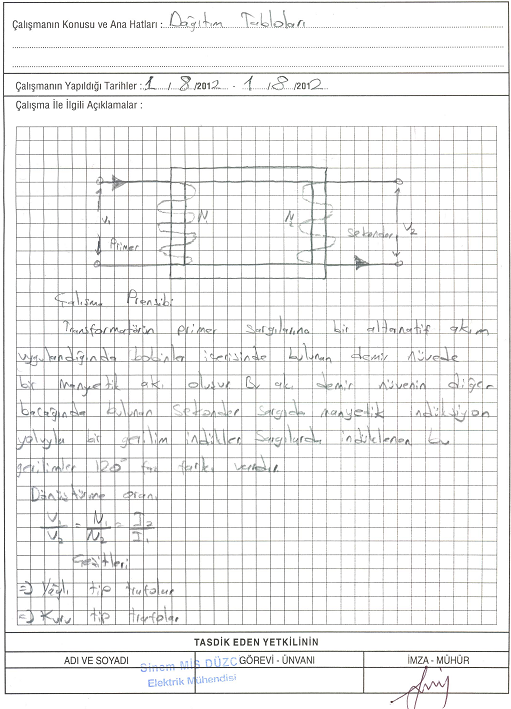 Çalışmanın Konusu ve Ana Hatları : Dağıtım Tabloları
Çalışmanın Yapıldığı Tarihler : 1 / 8 /2012 - 1 / 8 /2012
Çalışma İle İlgili Açıklamalar :
V1 N1 N2 V2
Primer Sekonder
Çalışma Prensibi
Transformatörün primer sargılarına bir altanatif akım
uygulandığında bobinler içerisinde bulunan demir nüvede
bir manyetik akı oluşur Bu akı demir nüvenin diğer
bacağında bulunan sekonder sargıda manyetik indüksiyon
yoluyla bir gerilim indükler Sargılarda indüklenen bu
gerilimler 120° faz farkı vardır.
Dönüştürme oranı
V1/V2 = N1/N2 = I2/I1
Çeşitleri
=> Yağlı tip trafolar
=> Kuru tip trafolar
TASDİK EDEN YETKİLİNİN
ADI VE SOYADI GÖREVİ - ÜNVANI İMZA - MÜHÜR
Sinem MİS DÜZC
Elektrik Mühendisi